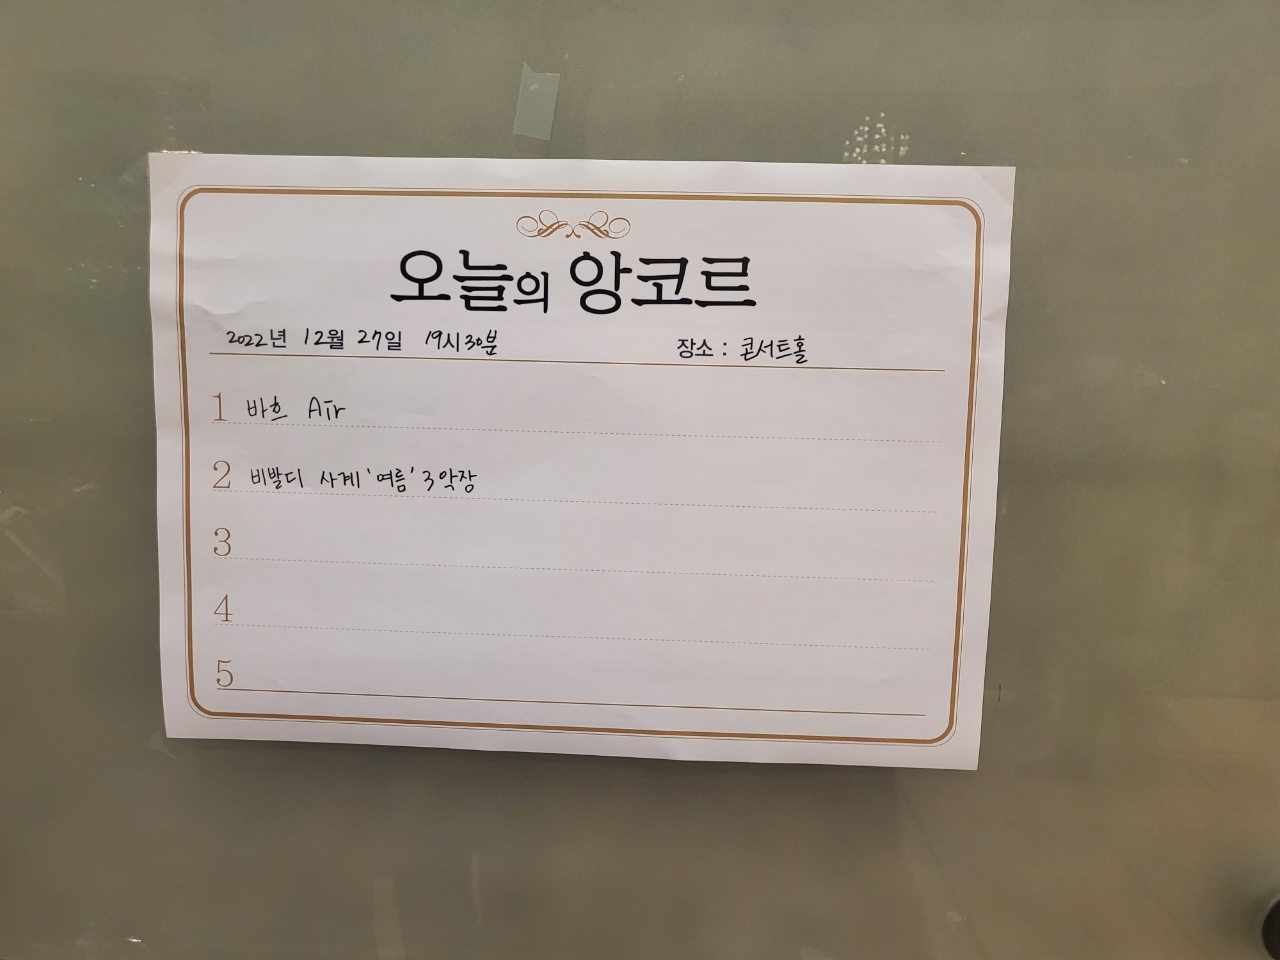 오늘의 앙코르
2022년 12월 27일 19시 30분 장소 : 콘서트홀
1 바흐 Air
2 비발디 사계 '여름' 3악장
3
4
5